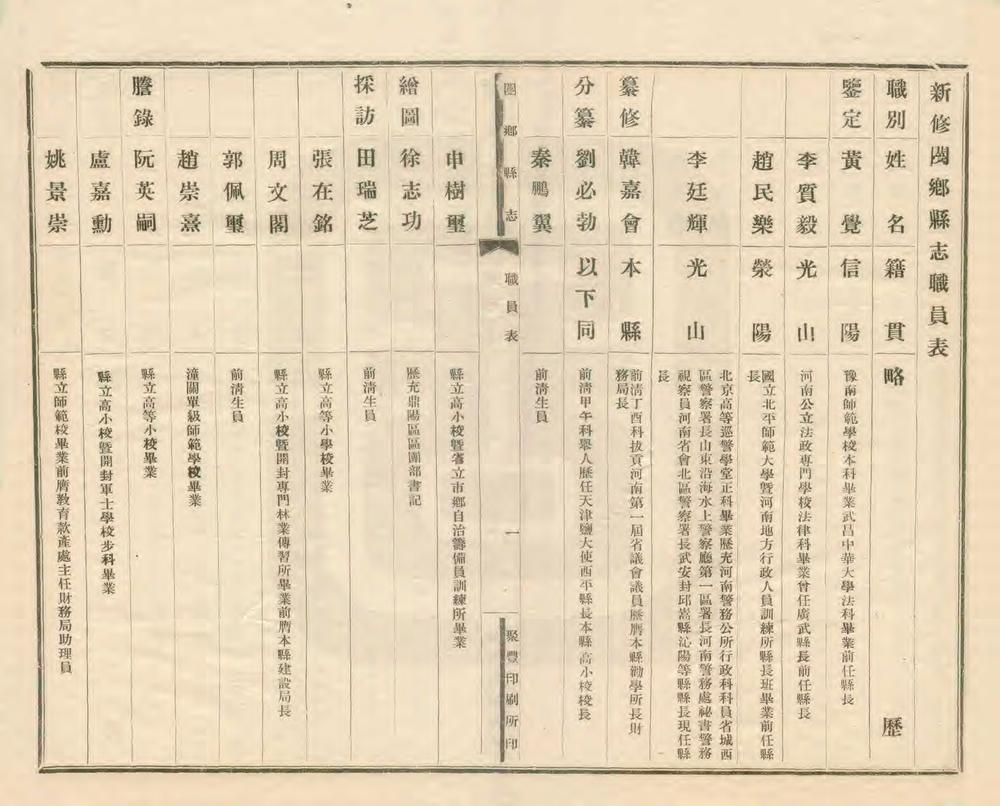 新修閿鄉縣志職員表
職別 姓名 籍貫 略歷
鑒定 黃覺 信陽 豫南師範學校本科畢業武昌中華大學法科畢業前任縣長
李質毅 光山 河南公立法政專門學校法律科畢業曾任廣武縣長前任縣長
趙民樂 滎陽 國立北平師範大學暨河南地方行政人員訓練所縣長班畢業前任縣
長
李廷輝 光山 北京高等巡警學堂正科畢業歷充河南警務公所行政科科員省城西
區警察署長山東沿海水上警察廳第一區署長河南警務處祕書警務
視察員河南省會北區警察署長武安封邱嵩縣沁陽等縣縣長現任縣
長
纂修 韓嘉會 本縣 前清丁酉科拔貢河南第一屆省議會議員歷膺本縣勸學所長財
務局長
分纂 劉必勃 以下同 前清甲午科舉人歷任天津鹽大使西平縣長本縣高小校校長
秦鵬翼 前清生員
閿鄉縣志 職員表 一 聚豐印刷所印
申樹璽 縣立高小校暨省立市鄉自治籌備員訓練所畢業
繪圖 徐志功 歷充鼎陽區區團部書記
採訪 田瑞芝 前清生員
張在銘 縣立高等小學校畢業
周文閣 縣立高小校暨開封專門林業傳習所畢業前膺本縣建設局長
郭佩璽 前清生員
趙崇熹 潼關單級師範學校畢業
謄錄 阮英嗣 縣立高等小校畢業
盧嘉勳 縣立高小校暨開封軍士學校步科畢業
姚景崇 縣立師範校畢業前膺教育款產處主任財務局助理員